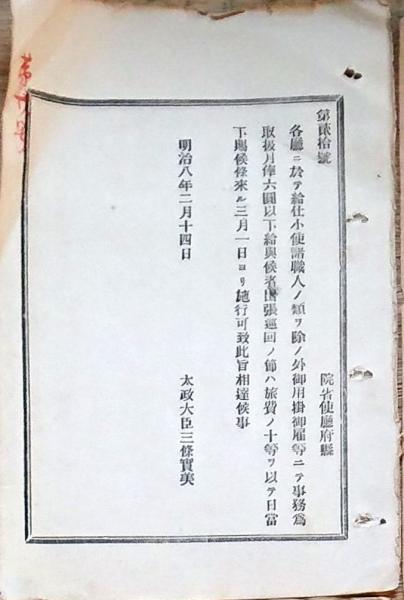 第貳拾號
院省使廳府縣
各廳ニ於テ給仕小使諸職人ノ類ヲ除ノ外御用掛御雇等ニテ事務爲
取扱月俸六圓以下給與候者出張巡回ノ節ハ旅費ノ十等ヲ以テ日當
下賜候條來ル三月一日ヨリ施行可致此旨相達候事
明治八年二月十四日
太政大臣三條實美